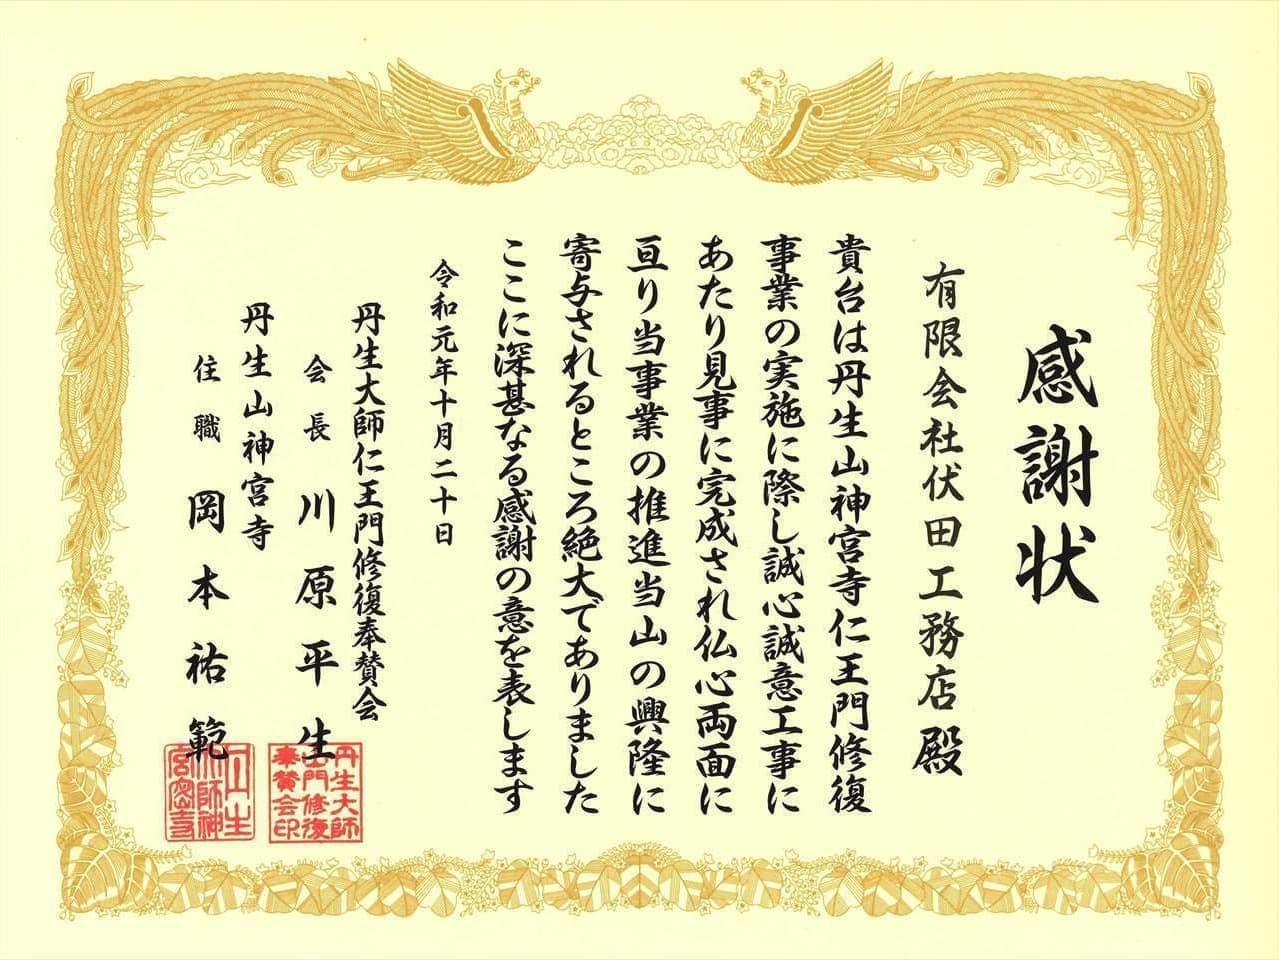 感謝状
有限会社伏田工務店殿
貴台は丹生山神宮寺仁王門修復
事業の実施に際し誠心誠意工事に
あたり見事に完成され仏心両面に
亘り当事業の推進当山の興隆に
寄与されるところ絶大でありました
ここに深甚なる感謝の意を表します
令和元年十月二十日
丹生大師仁王門修復奉賛会
会長 川原平生
丹生山神宮寺
住職 岡本祐範
丹生大師
山門修復
奉賛会印